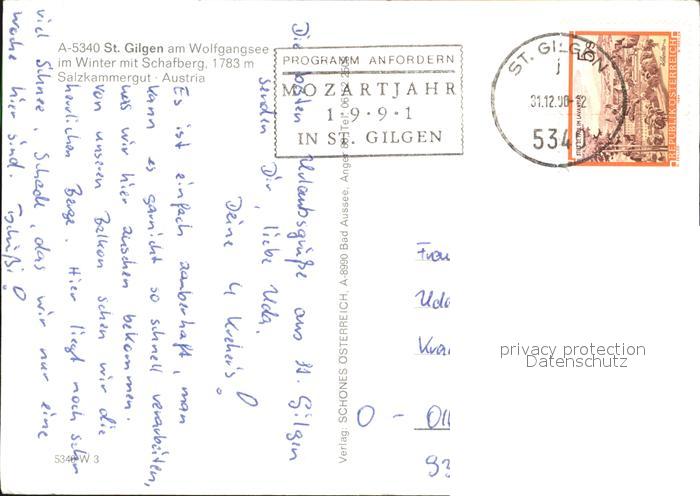 A-5340 St. Gilgen am Wolfgangsee
im Winter mit Schafberg, 1783 m
Salzkammergut · Austria
PROGRAMM ANFORDERN
MOZARTJAHR
1·9·9·1
IN ST. GILGEN
ST. GILGEN
31.12.90-12
534
REPUBLIK ÖSTERREICH
Die besten Urlaubsgrüße aus St. Gilgen
senden Dir, liebe Uda,
Deine 4 Kreher's!
Es ist einfach zauberhaft, man
kann es garnicht so schnell verarbeiten,
was wir hier zusehen bekommen.
Von unsren Balkon sehen wir die
herrlichen Berge. Hier liegt noch sehr
viel Schnee. Schade, das wir nur eine
Woche hier sind. Tschüßi!
Verlag: SCHÖNES ÖSTERREICH, A-8990 Bad Aussee, Anger
Frau
Uda
O -
5340 W 3
privacy protection
Datenschutz